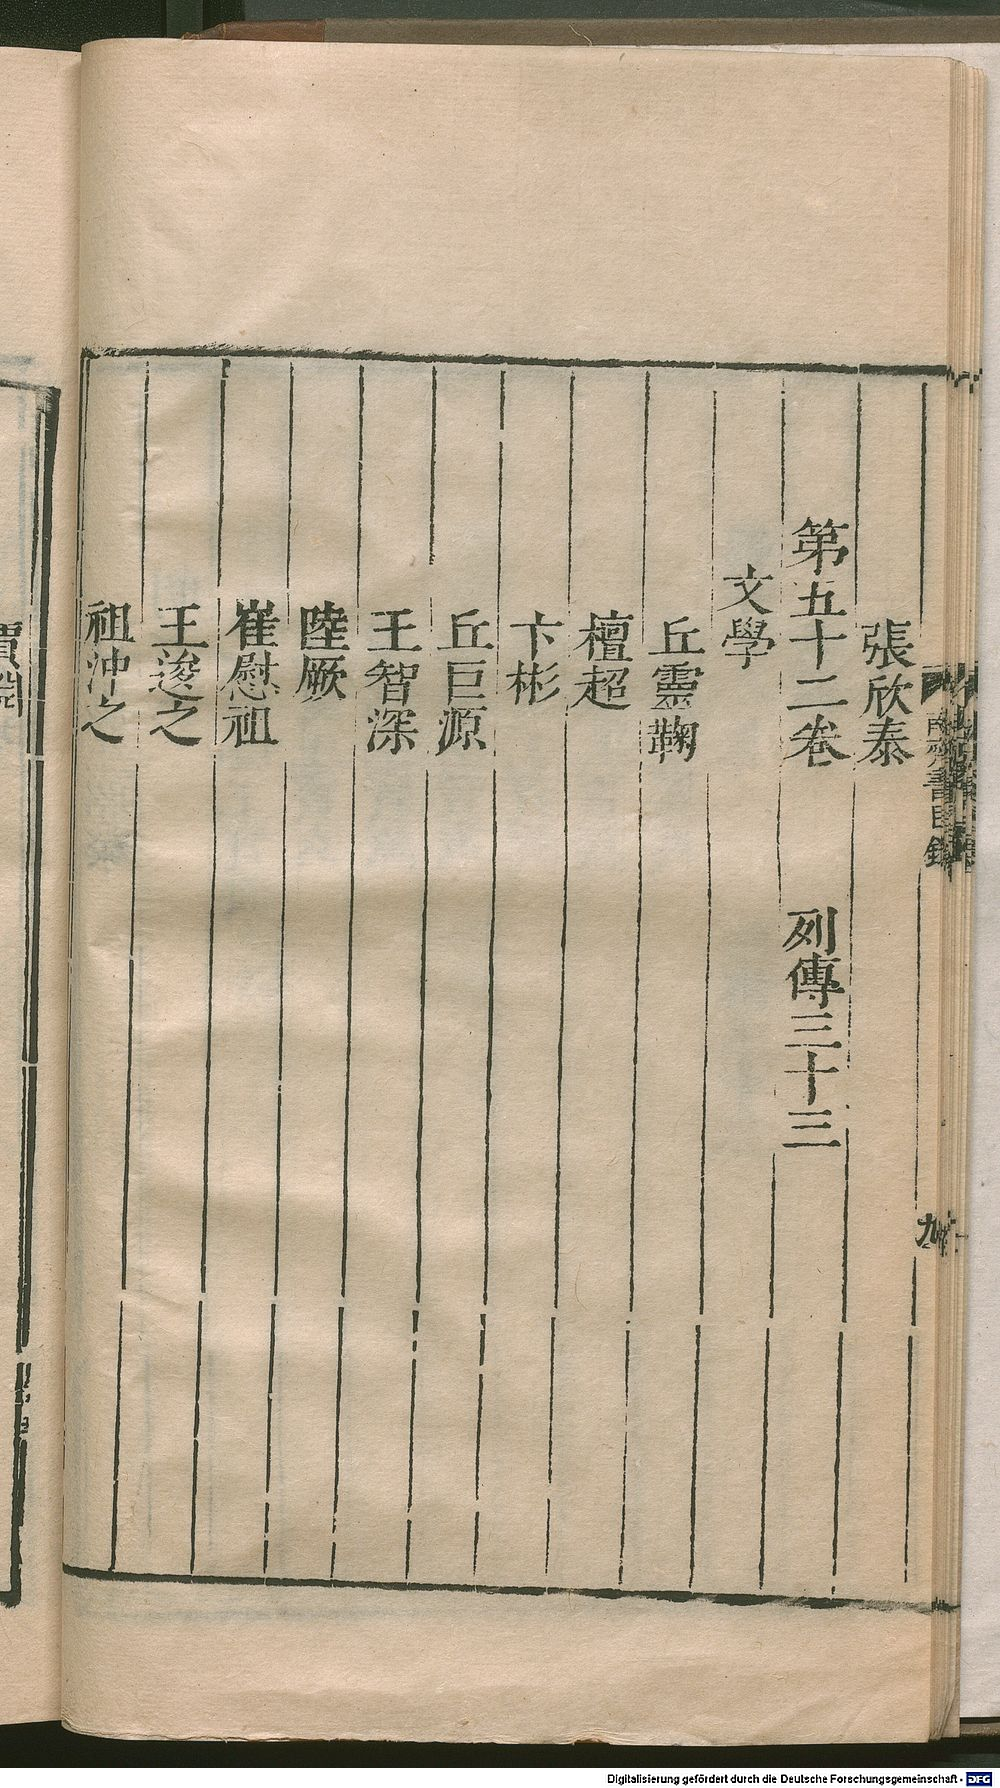 張欣泰
第五十二卷 列傳三十三
文學
丘靈鞠
檀超
卞彬
丘巨源
王智深
陸厥
崔慰祖
王逡之
祖沖之
南齊書目錄
九
Digitalisierung gefördert durch die Deutsche Forschungsgemeinschaft - DFG